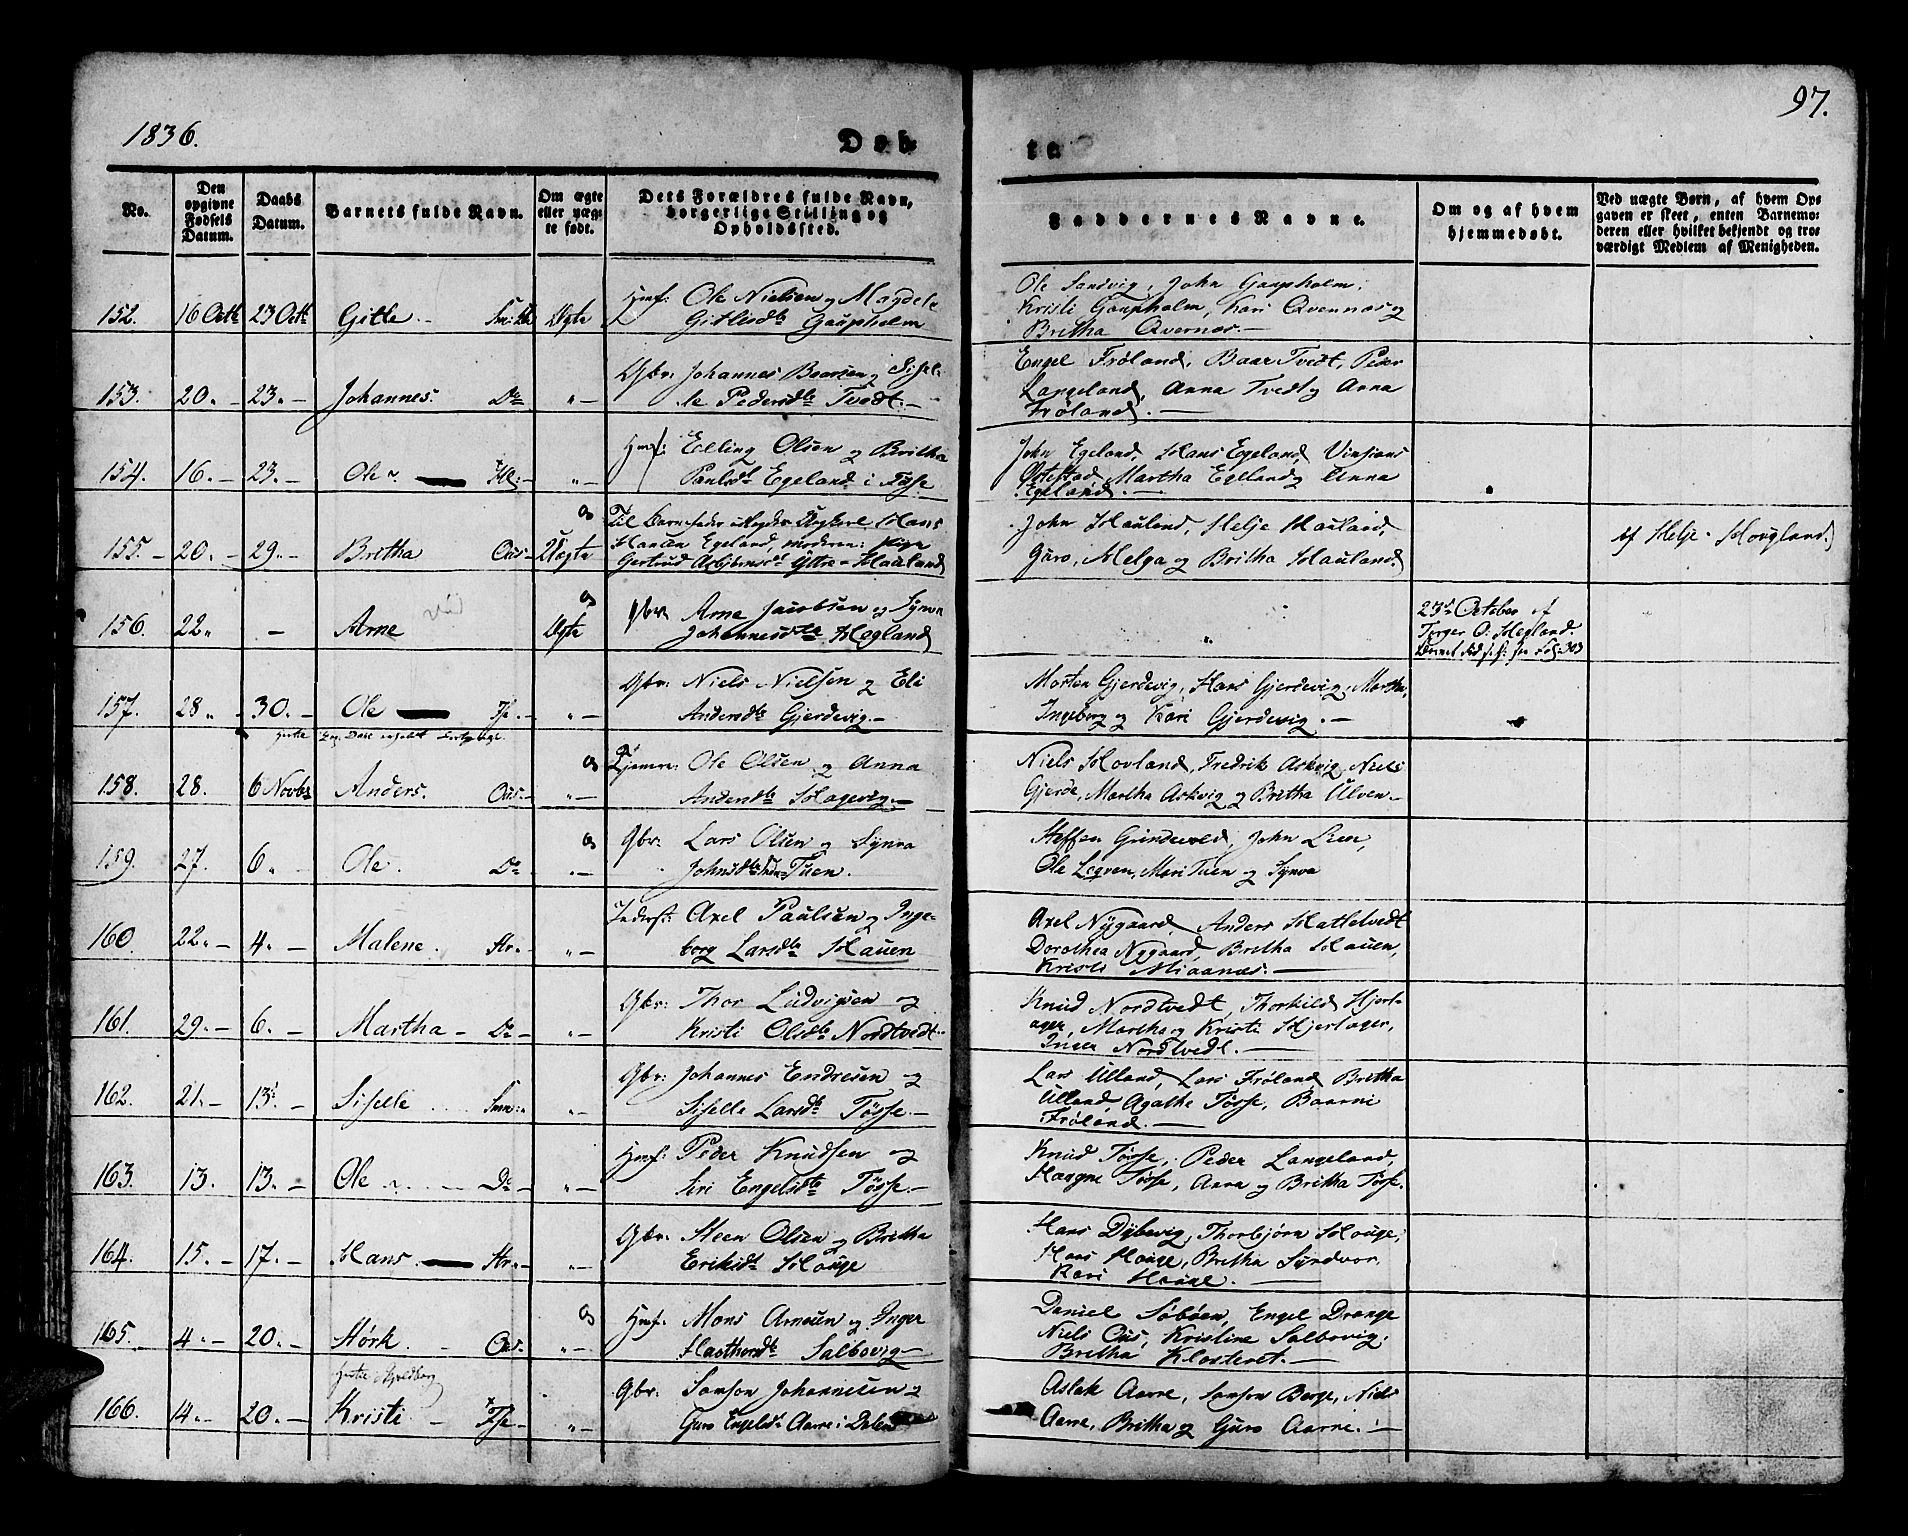 1836.
Døb
te
97.
No.
Den opgivne Fødsels Datum.
Daabs Datum.
Barnets fulde Navn.
Om ægte eller uægte født.
Dets Forældres fulde Navn, borgerlige Stilling og Opholdssted.
Faddernes Navne.
Om og af hvem hjemmedøbt.
Ved uægte Børn, af hvem Opgaven er skeet, enten Barnemoderen eller hvilket bekjendt og troværdigt Medlem af Menigheden.
152. 16 Octb 23 Octb Gitle Ægte Hmf: Ole Nielsen og Magdele
Gitlesdtr Gaupholm
Ole Sandvig, John Gaupholm,
Kristi Gaupholm, Kari Qvernæs og
Britha Qvernæs
153. 20. 23. Johannes. Do " Gbr: Johannes Baarsen og Sisel-
le Pedersdtr Tvedt.
Engel Frøland, Baar Tvedt, Peder
Langeland, Anna Tvedt og Anna
Frøland.
154. 16. 23. Ole " Hmf: Elling Olsen og Britha
Paulsdtr Egeland i Fuse
John Egeland, Hans Egeland,
Martha Egeland og Anna
Egeland.
155. 20. 29. Bretha Ous Uægte Til Barnefader
Hansen Egeland, moderen: Pige
Gertrud Asbjørnsdtr Yttre-Hauland
John Hauland, Helje Hauland,
Guro, Helga og Britha Hauland.
Af Helje Hougland.
156. 22 - Arne Ægte Gbr: Arne Jacobsen og Synva
Johannesdtr Hegland
"
23de October af
Torger O. Hegland.
157. 28 30. Ole " Gbr: Niels Nielsen og Eli
Andersdtr Gjerdevig.
Morten Gjerdevig, Hans Gjerdevig, Martha,
Ingeborg og Kari Gjerdevig.
158. 28. 6 Novbr Anders. Ous " Tjenere: Ole Olsen og Anna
Andersdtr Hagevig.
Niels Hovland, Fredrik Askvig, Niels
Gjerde, Martha Askvig og Britha Ulven
159. 27. 6. Ole. Do " Gbr: Lars Olsen og Synva
Johnsdtr Tuen.
Steffen Grindevold, John Lien,
Ole Leqven, Mari Tuen og Synva
160. 22. 4. Malene. Str. " Inderst: Axel Paulsen og Inge-
borg Larsdtr Hauen
Axel Nygaard, Anders Hatletvedt
Dorothea Nygaard, Bretha Hauen,
Kristi Miaanæs.
161. 29. 6. Martha Do " Gbr: Thor Ludvigsen og
Kristi Olsdtr Nordtvedt.
Knud Nordtvedt, Thorkild Hjort-
ager, Martha og Kristi Hjortager,
Inger Nordtvedt.
162. 21. 13. Siselle " Gbr: Johannes Endresen og
Siselle Larsdtr Tøsse.
Lars Ulland, Lars Frøland, Bretha
Ulland, Agathe Tøsse, Baarni
Frøland.
163. 13. 13. Ole Do " Hmf: Peder Knudsen og
Siri Engelsdtr Tøsse
Knud Tøsse, Peder Langeland,
Haagne Tøsse, Anna og Britha Tøsse.
164. 15. 17. Hans Str. " Gbr: Steen Olsen og Bretha
Eriksdtr Houge
Hans Dybevig, Thorbjørn Houge,
Hans Houge, Bretha Syndvor,
Kari Houge.
165. 4. 20. Størk Ous " Hmf: Mons Arnesen og Inger
Haathorsdtr Salbovig
Daniel Søbøen, Engel Drange
Niels Ous, Kristine Salbovig,
Bretha Klosteret.
166. 14. 20. Kristi " Gbr: Samson Johannesen og
Guro Engelsdtr Aarre i Dalen
Aslak Aarre, Samson Berge, Niels
Aarre, Britha og Guro Aarre.